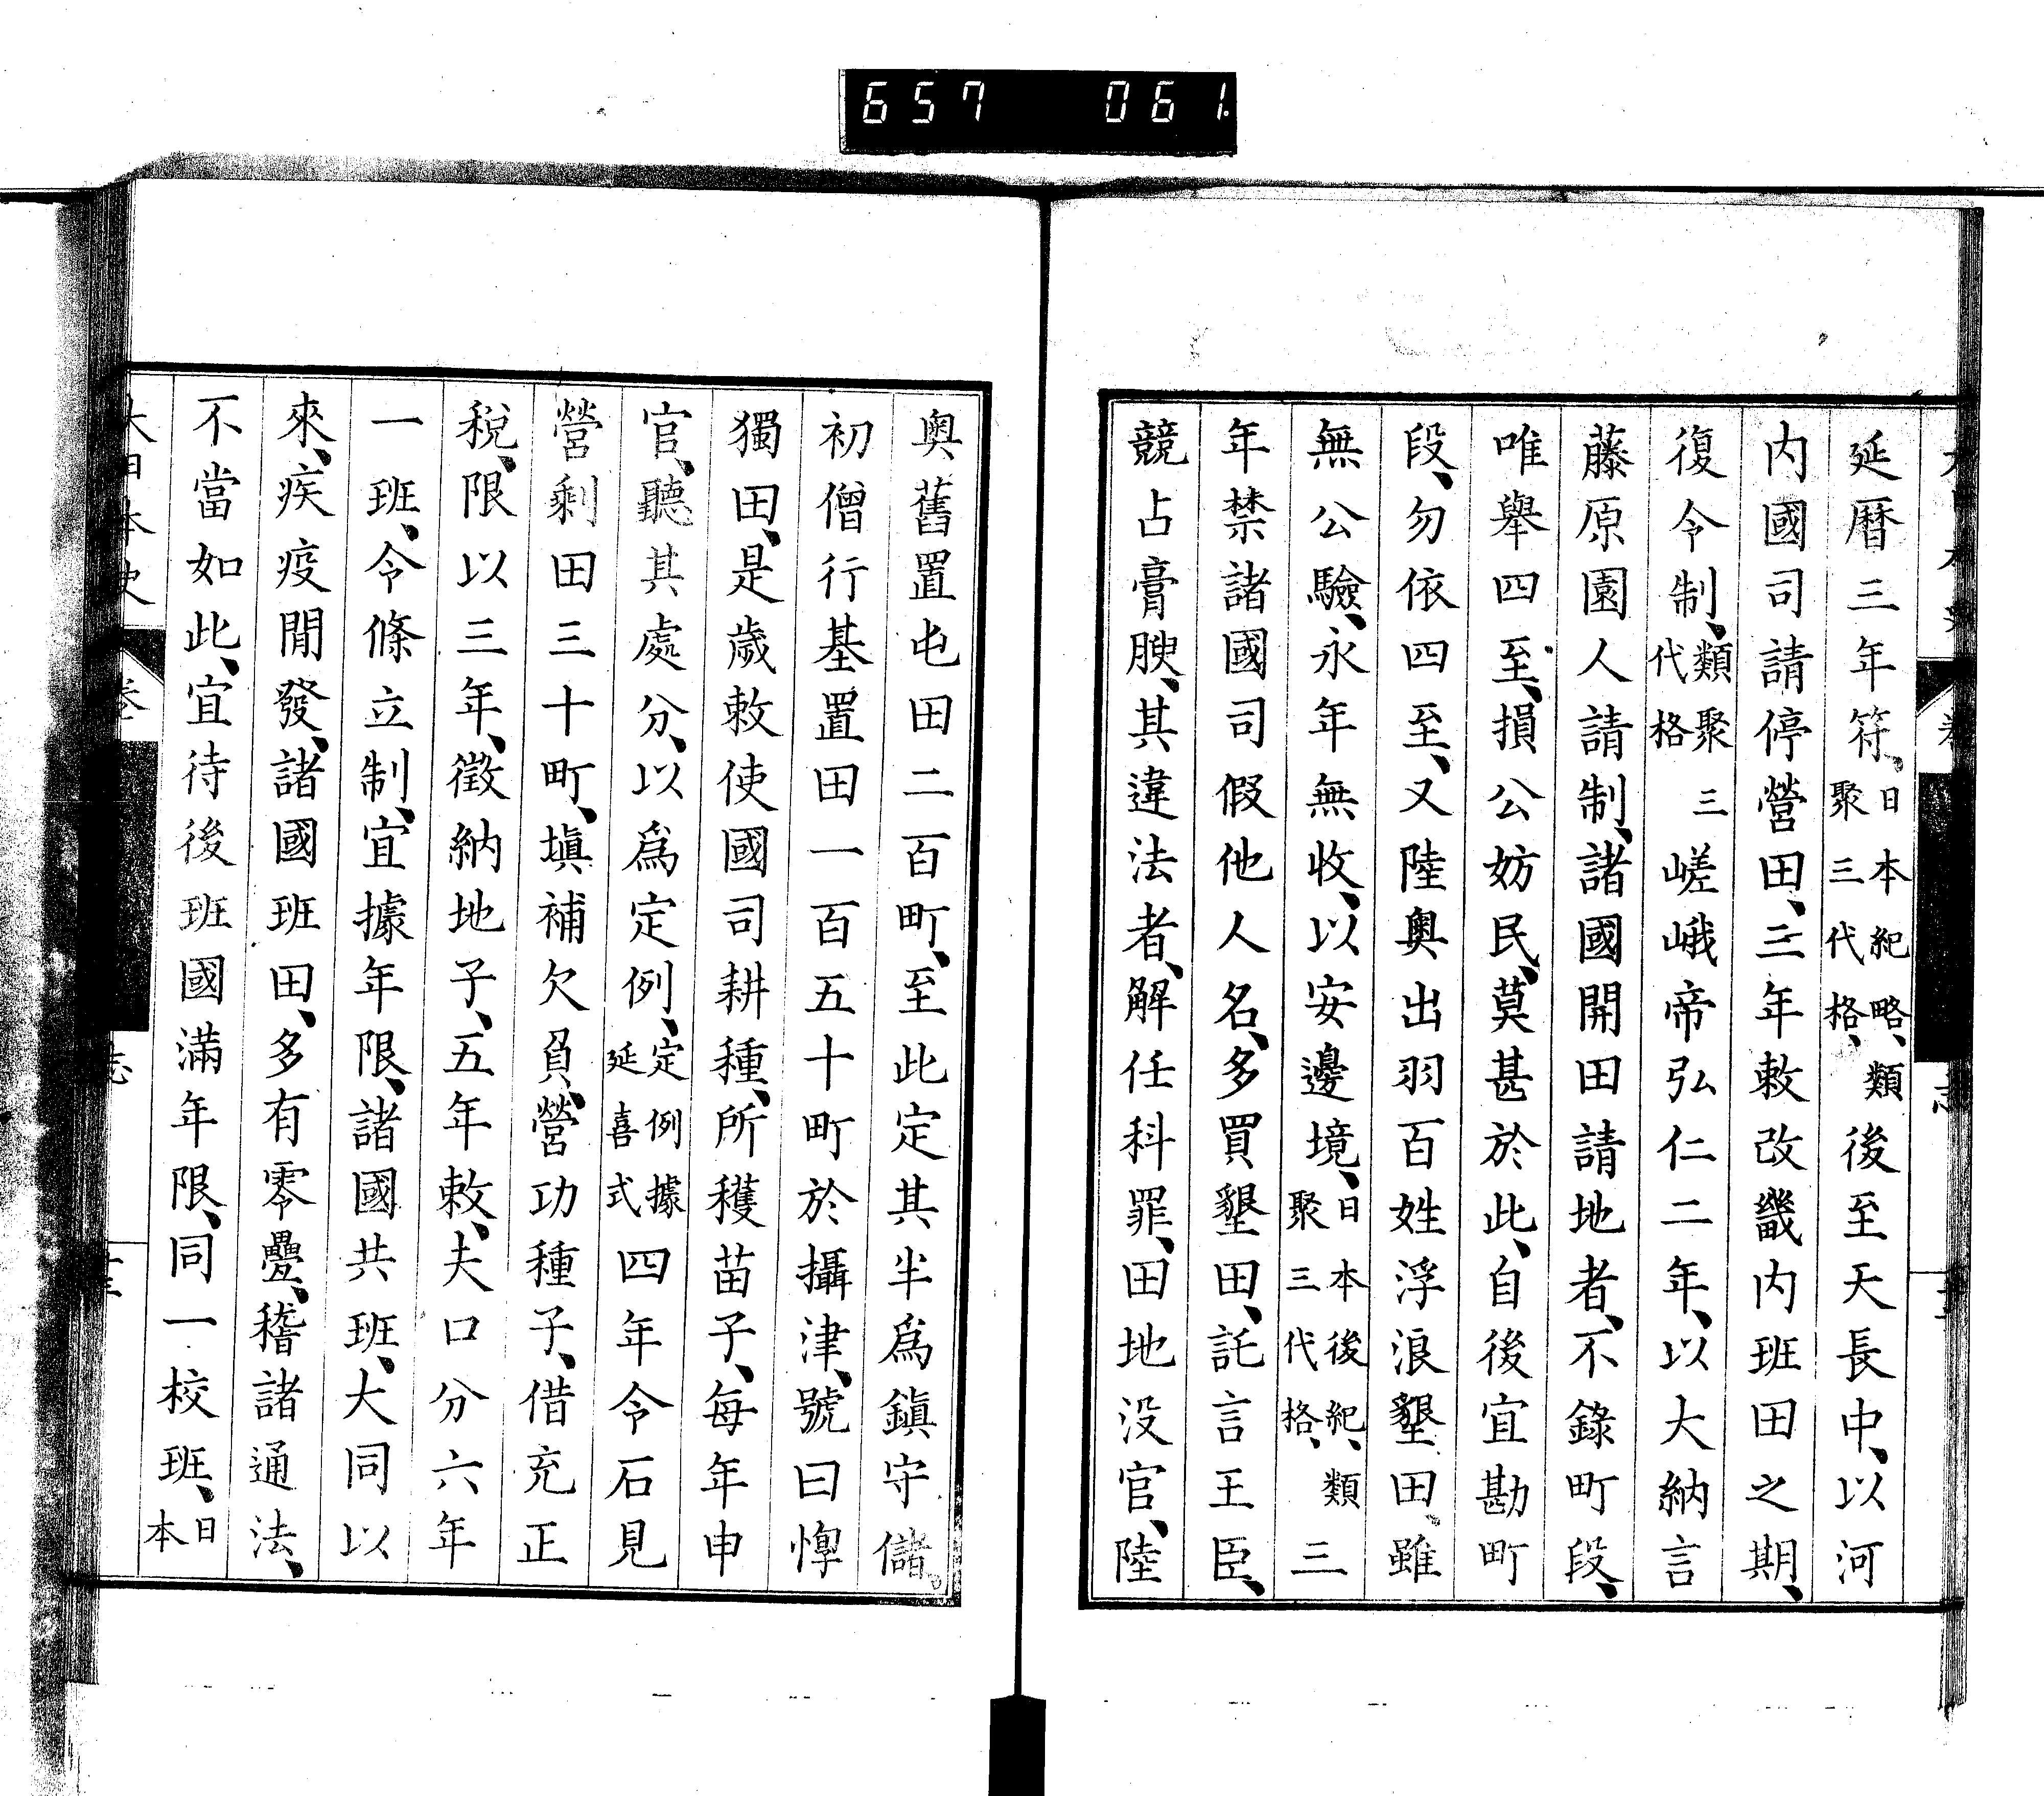 657 061
延曆三年符、日本紀略、類聚三代格、後至天長中、以河
内國司請停營田、三年敕改畿内班田之期、
復令制、類聚三代格嵯峨帝弘仁二年、以大納言
藤原園人請制、諸國開田請地者、不錄町段、
唯舉四至、損公妨民、莫甚於此、自後宜勘町
段、勿依四至、又陸奧出羽百姓浮浪墾田、雖
無公驗、永年無收、以安邊境、日本後紀、類聚三代格、三
年禁諸國司假他人名、多買墾田、託言王臣、
競占膏腴、其違法者、解任科罪、田地没官、陸
奧舊置屯田二百町、至此定其半爲鎭守儲。
初僧行基置田一百五十町於攝津、號曰惸
獨田、是歲敕使國司耕種、所穫苗子、每年申
官、聽其處分、以爲定例、定例據延喜式四年令石見
營剩田三十町、塡補欠負、營功種子、借充正
稅、限以三年、徵納地子、五年敕、夫口分六年
一班、令條立制、宜據年限、諸國共班、大同以
來、疾疫閒發、諸國班田、多有零疊、稽諸通法、
不當如此、宜待後班國滿年限、同一校班、日本
大日本史 卷 志